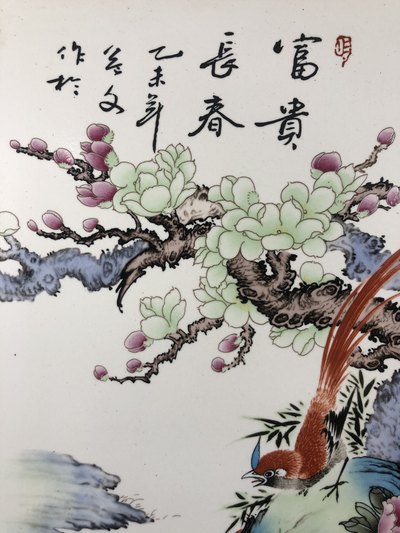 富貴
長春
乙未年
益文
作於